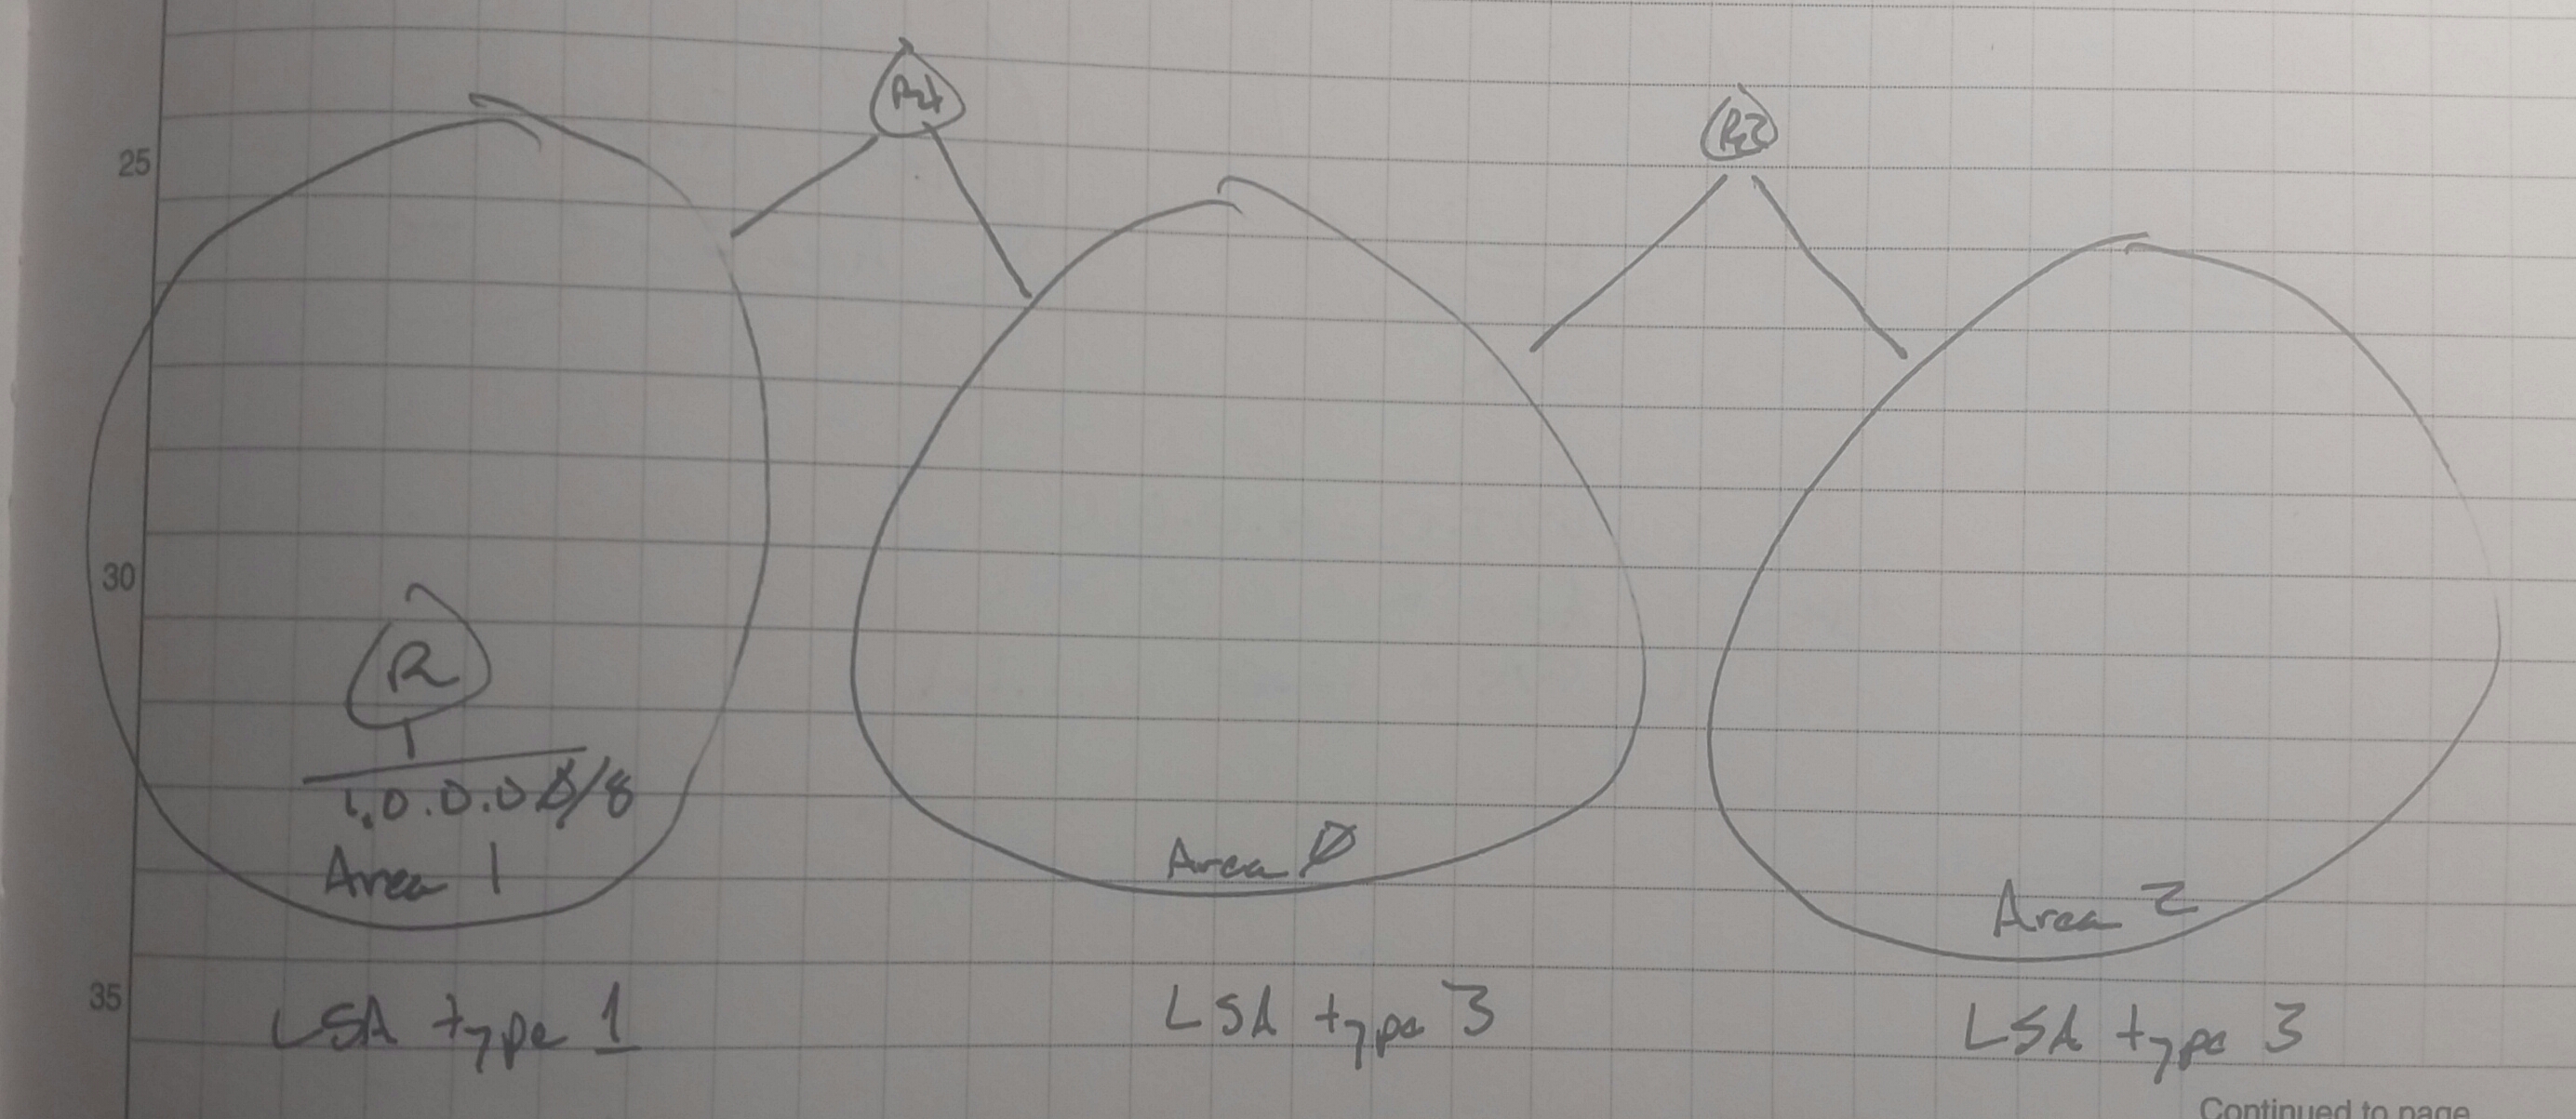 R1
R2
25
30
R
1.0.0.0/8
Area 1
Area Ø
Area 2
35
LSA type 1
LSA type 3
LSA type 3
Continued to page